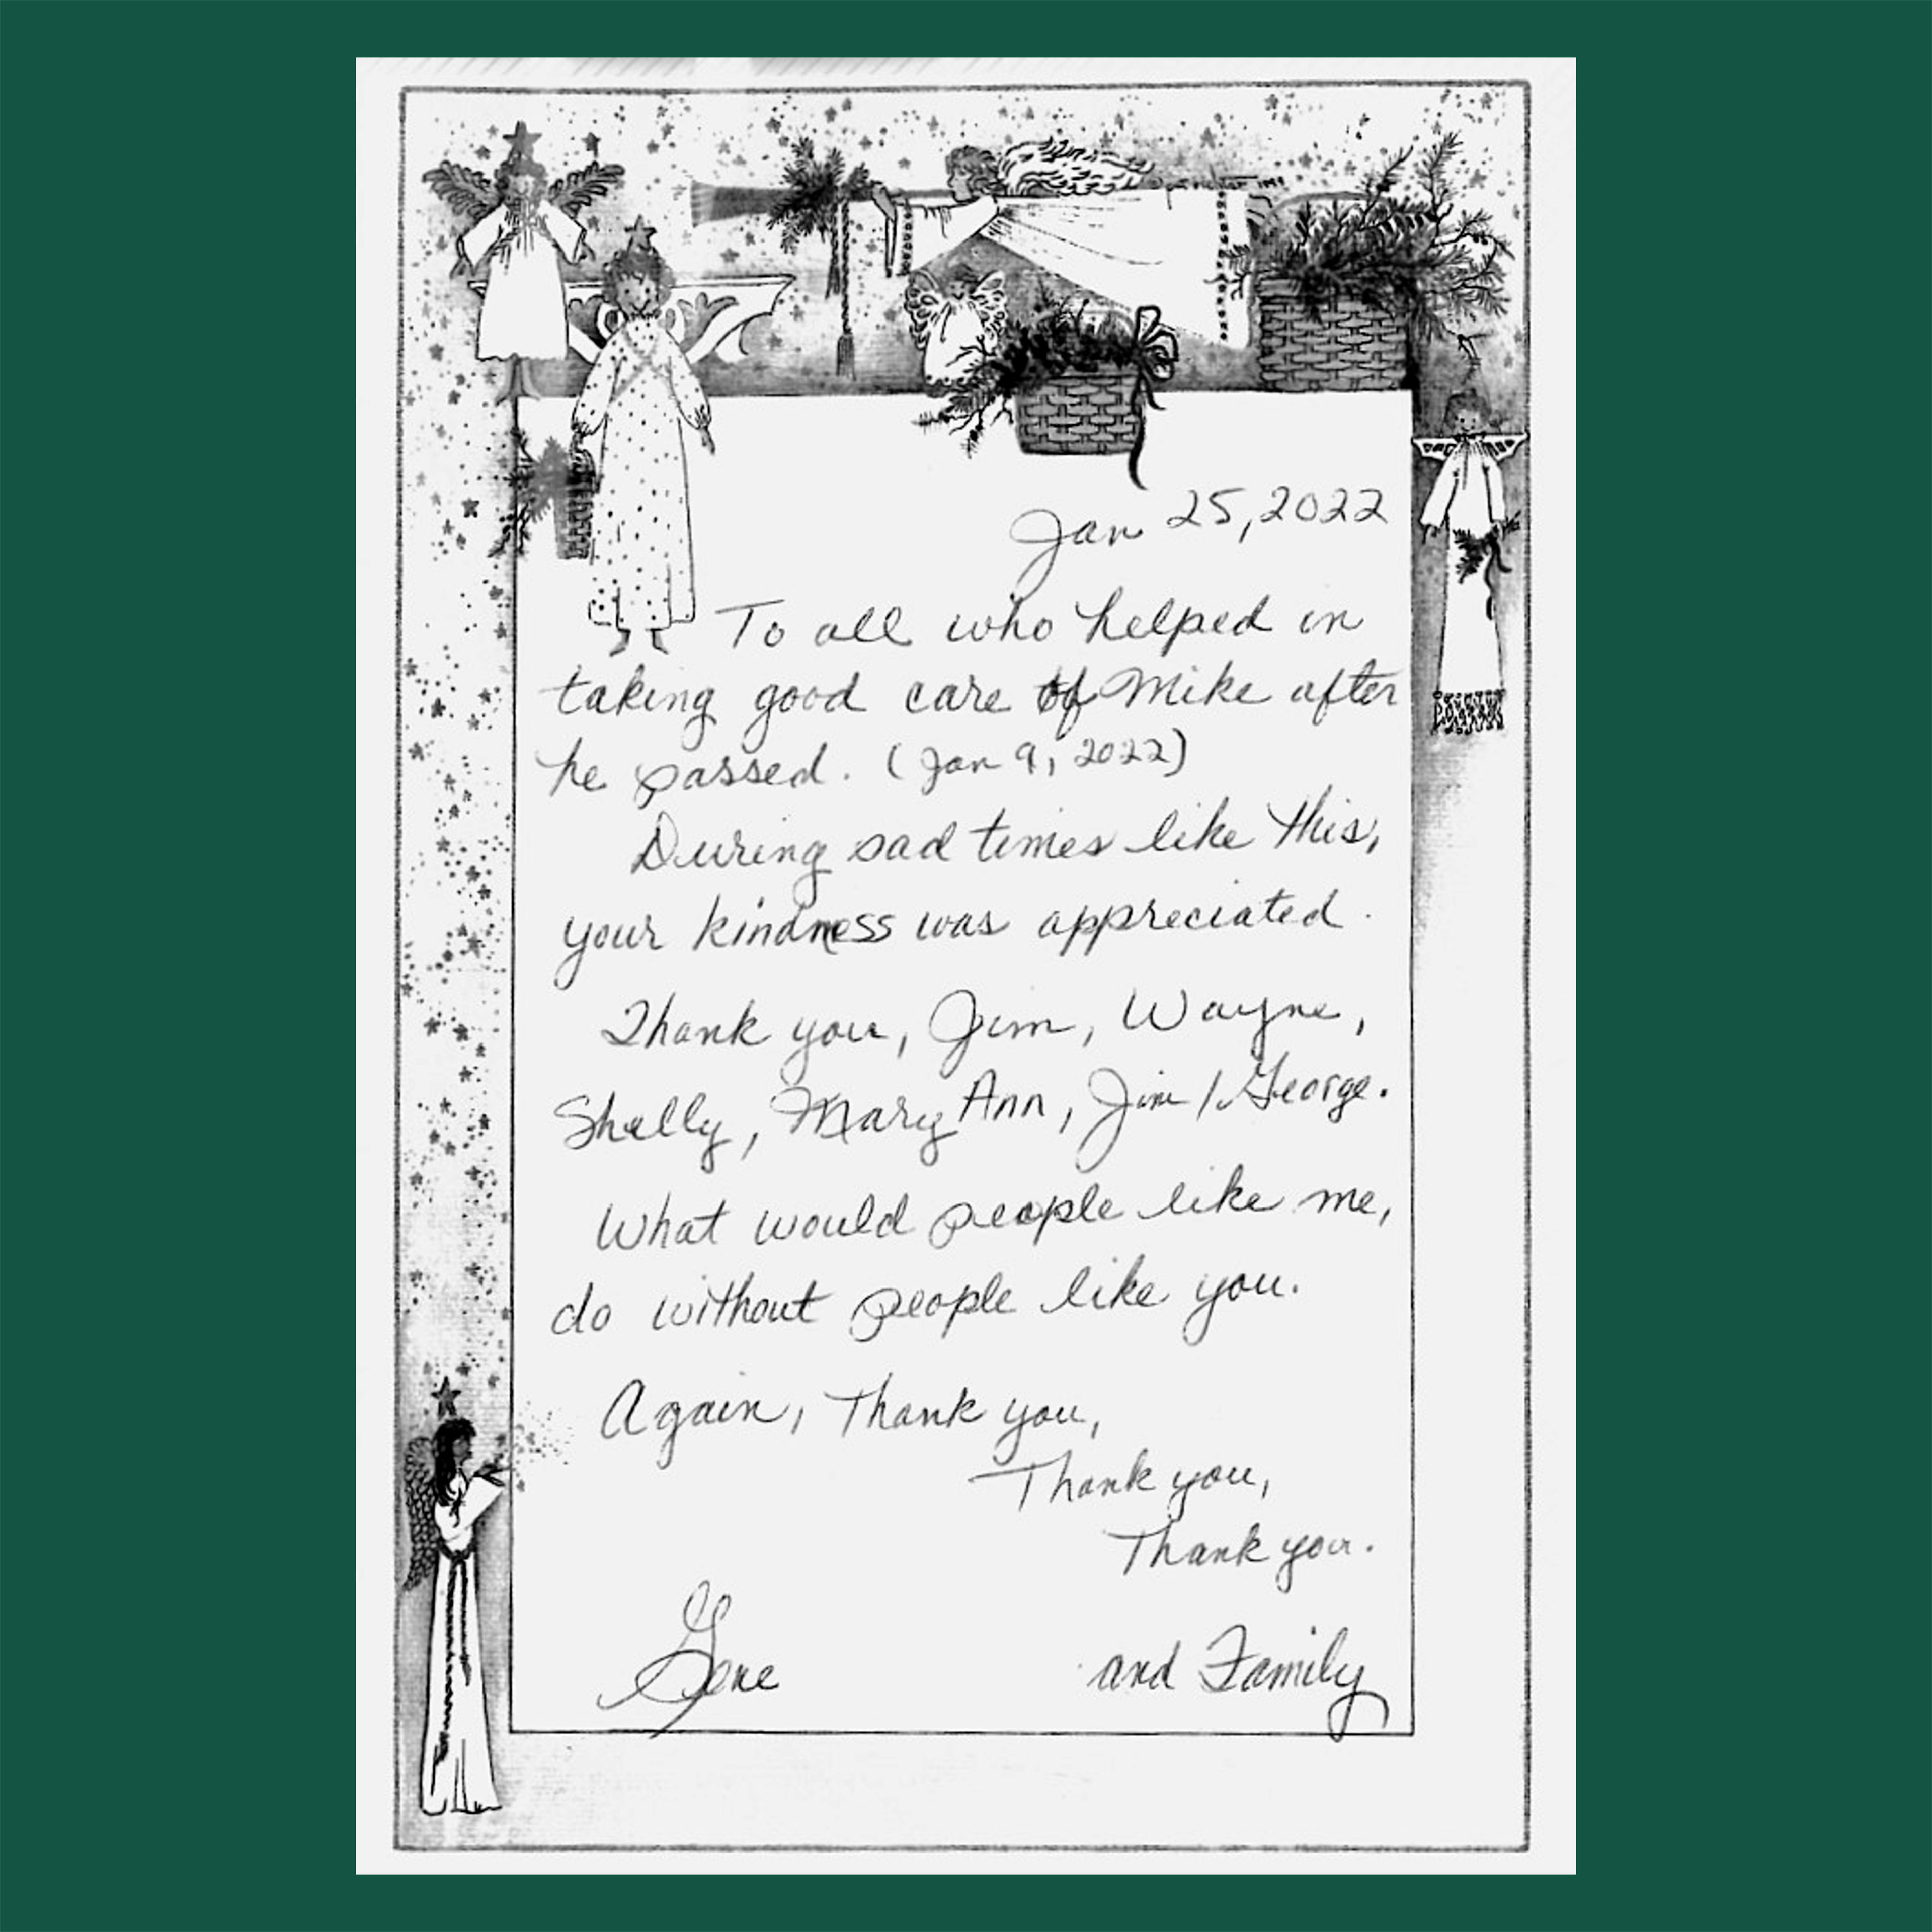 Jan 25, 2022
To all who helped in
taking good care of Mike after
he passed. (Jan 9, 2022)
During sad times like this,
your kindness was appreciated.
Thank you, Jim, Wayne,
Shelly, Mary Ann, Jim / George.
What would people like me,
do without people like you.
Again, Thank you,
Thank you,
Thank you.
Gene and Family